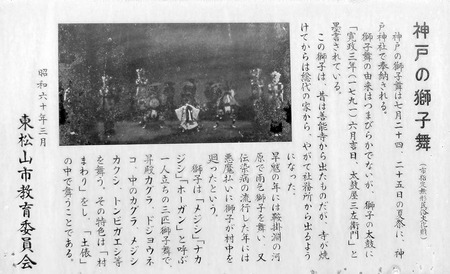 神戸の獅子舞
（市指定無形民俗文化財）
神戸の獅子舞は七月二十四、二十五日の夏祭に、神
戸神社で奉納される。
獅子舞の由来はつまびらかでないが、獅子の太鼓に
「寛政三年（一七九一）六月吉日、太鼓屋三左衛門」と
墨書されている。
この獅子は、昔は善能寺から出たものだが、寺が焼
けてからは総代の家から、やがて社務所から出るよう
になった。
早魃の年には鞍掛淵の河
原で雨乞獅子を舞い、又
伝染病の流行した年には
悪魔払いに獅子が村中を
廻ったという。
獅子は「メジシ」「ナカ
ジシ」「ホーガン」と呼ぶ
一人立ちの三匹獅子舞で
昇殿カグラ、ドジョウネ
コ、中のカグラ、メジシ
カクシ、トンビガエシ等
を舞う。その特色は「村
まわり」をし、「土俵」
の中で舞うことである。
昭和六十年三月
東松山市教育委員会